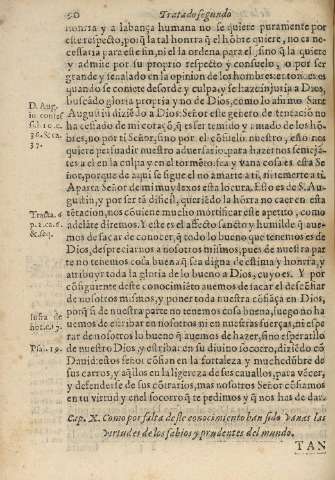 50 Tratado segundo
honrra y alabança humana no se quiere puramente por
este respecto, porq̃ la tal honrra q̃ el hõbre quiere, no es ne-
cessaria para este fin, ni el la ordena para el, sino q̃ la quiere
y admite por su proprio respecto y consuelo, o por ser
grande y señalado en la opinion de los hombres: entonces es
quando se comete desorde y culpa, y se haze injuria a Dios,
buscãdo gloria propria y no de Dios, como lo afirmo Sant
Augustin diziẽdo a Dios: Señor este genero de tentacio no
ha cessado de mi coraçõ, q̃ es ser temido y amado de los hõ-
bres, no por ti Señor, sino por el cõsuelo nuestro, esto nos
quiere persuadir nuestro aduersario, para hazernos semejã-
tes a el en la culpa y en el tormẽto. fea y vana cosa es esta Se
ñor, porque de aqui se sigue el no amarte a ti, ni temerte a ti.
Aparta Señor de mi muy lexos esta locura. Esto es de S. Au-
gustin, y por ser tã dificil, queriẽdo la hõrra no caer en esta
tẽtacion, nos conuiene mucho mortificar este apetito, como
adelãte diremos. Y este es el affecto sancto y humilde q̃ aue-
mos de sacar de conocer, q̃ todo lo bueno que tenemos es de
Dios, despreciarnos a nosotros mismos, pues de nuestra par
te no tenemos cosa buena q̃ sea digna de estima y honrra, y
atribuyr toda la gloria de lo bueno a Dios, cuyo es. Y por
cõsiguiente deste conocimiẽto auemos de sacar el descõfiar
de nosotros mismos, y poner toda nuestra cõfiãça en Dios,
porq̃ si de nuestra parte no tenemos cosa buena, luego no ha
uemos de estribar en nosotros ni en nuestras fuerças, ni espe
rar de nosotros lo bueno q̃ auemos de hazer, sino esperarlo
de nuestro Dios, y estribar en su diuino socorro, diziẽdo cõ
Dauid: estos señor cõfian en la fortaleza y muchedũbre de
sus carros, y aq̃llos en la ligereza de sus cauallos, para vẽcer,
y defenderse de sus cõtrarios, mas nosotros Señor cõfiamos
en tu virtud y en el socorro q̃ te pedimos y q̃ nos has de dar.
Cap. X. Como por falta deste conocimiento han sido vanas las
virtudes de los sabios y prudentes del mundo.
TAN
D. Aug.
in confes
37.
Tracta. 4
p. 2. ca. 6.
& seq.
Infra de
Psa. 19.